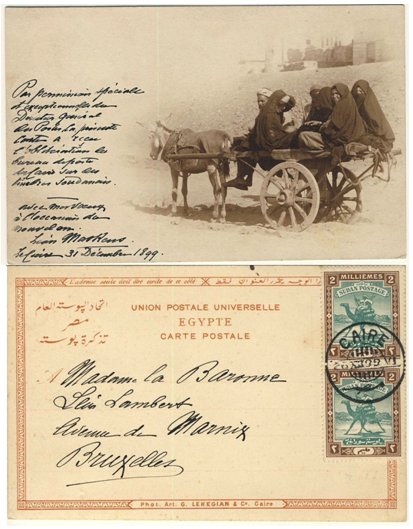 Par permission spéciale
et exceptionnelle du
Directeur Général
des Postes la présente
carte a reçu
l'oblitération du
bureau de poste
du Caire sur des
timbres Soudanais.
avec mes vœux
à l'occasion du
nouvel an.
Le Caire 31 Décembre 1899.
L'adresse seule doit être écrite de ce côté
UNION POSTALE UNIVERSELLE
EGYPTE
CARTE POSTALE
اتحاد البوستة العام
مصر
تذكرة بوستة
Madame la Baronne
Léon Lambert
Avenue de Marnix
Bruxelles
2 MILLIÈMES 2
SUDAN POSTAGE
CAIRE
2 MILLIÈMES 2
Phot. Art. G. LEKEGIAN & Co. Caire